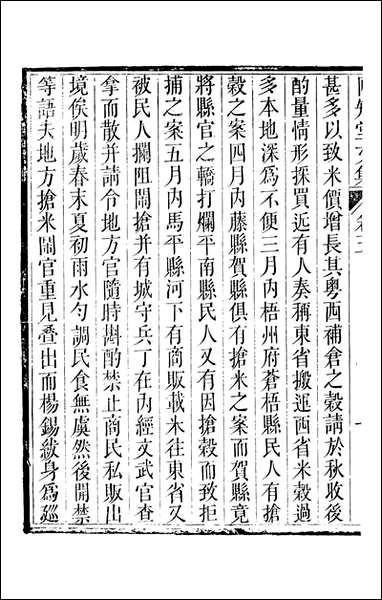 甚多以致米價增長其粵西補倉之穀請於秋收後
酌量情形採買近有人奏稱東省搬運西省米穀過
多本地深為不便三月內梧州府蒼梧縣民人有搶
穀之案四月內藤縣賀縣俱有搶米之案而賀縣竟
將縣官之轎打爛平南縣民人又有因搶穀而致拒
捕之案五月內馬平縣河下有商販載米往東省又
被民人攔阻鬧搶并有城守兵丁在內經文武官查
拿而散并請令地方官隨時斟酌禁止商民私販出
境俟明歲春末夏初雨水勻調民食無虞然後開禁
等語夫地方搶米鬧官重見疊出而楊錫紱身為廵